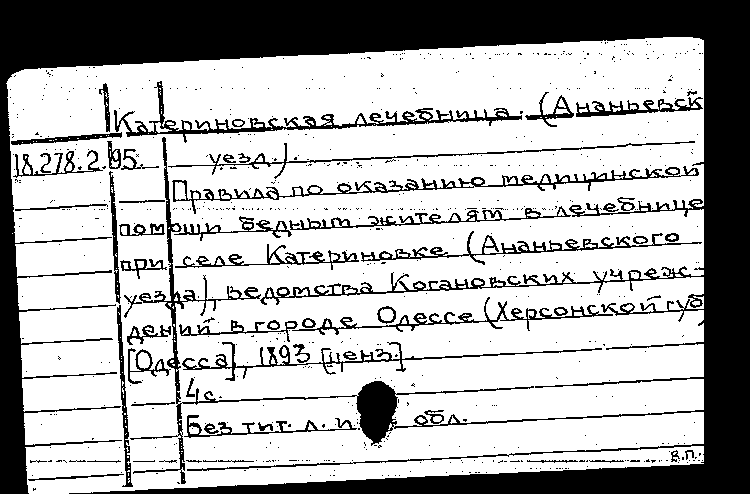 Катериновская лечебница. (Ананьевск
18.278.2.95. уезд.).
Правила по оказанию медицинской
помощи бедным жителям в лечебнице
при селе Катериновке (Ананьевского
уезда), ведомства Когановских учреж-
дений в городе Одессе (Херсонской губ
[Одесса], 1893 [ценз.].
4 с.
Без тит. л. и обл.
В.П.